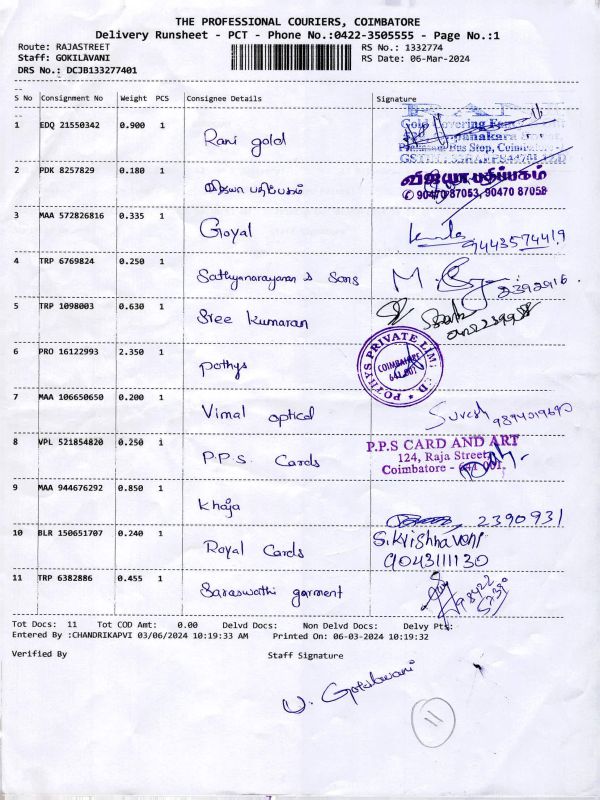 THE PROFESSIONAL COURIERS, COIMBATORE
Delivery Runsheet - PCT - Phone No.:0422-3505555 - Page No.:1
Route: RAJASTREET RS No.: 1332774
Staff: GOKILAVANI RS Date: 06-Mar-2024
DRS No.: DCJB133277401
S No Consignment No Weight PCS Consignee Details Signature
1 EDQ 21550342 0.900 1 Rani gold
2 PDK 8257829 0.180 1 விஜயா பதிப்பகம் விஜயா பதிப்பகம்
✆ 90470 87053, 90470 87058
3 MAA 572826816 0.335 1 Goyal 9443574419
4 TRP 6769824 0.250 1 Sathyanarayanan & Sons 2392916
5 TRP 1098003 0.630 1 Sree Kumaran
6 PRO 16122993 2.350 1 pothys POTHYS PRIVATE LIMITED COIMBATORE 641 001
7 MAA 106650650 0.200 1 Vimal optical Suresh
8 VPL 521854820 0.250 1 P.P.S. Cards P.P.S CARD AND ART
124, Raja Street,
Coimbatore - 641 001.
9 MAA 944676292 0.850 1 Khaja 2390931
10 BLR 150651707 0.240 1 Royal Cards S.Krishnaveni
9043111130
11 TRP 6382886 0.455 1 Saraswathi garment
Tot Docs: 11 Tot COD Amt: 0.00 Delvd Docs: Non Delvd Docs: Delvy Pts:
Entered By :CHANDRIKAPVI 03/06/2024 10:19:33 AM Printed On: 06-03-2024 10:19:32
Verified By Staff Signature
V. Gokilavani
11